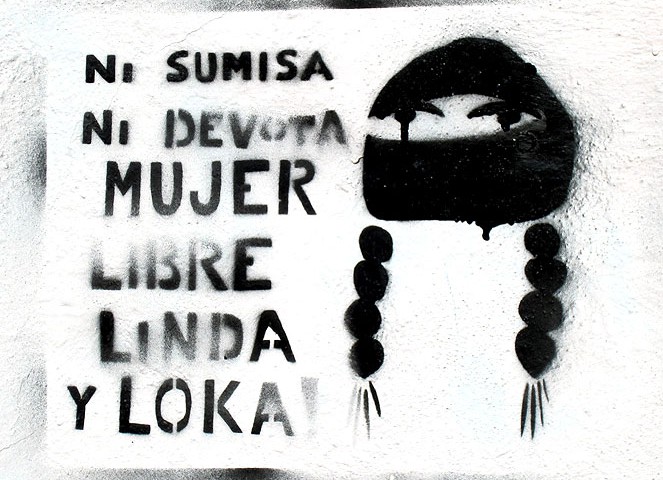 Ni SUMISA
Ni DEVOTA
MUJER
LIBRE
LiNDA
Y LOKA!